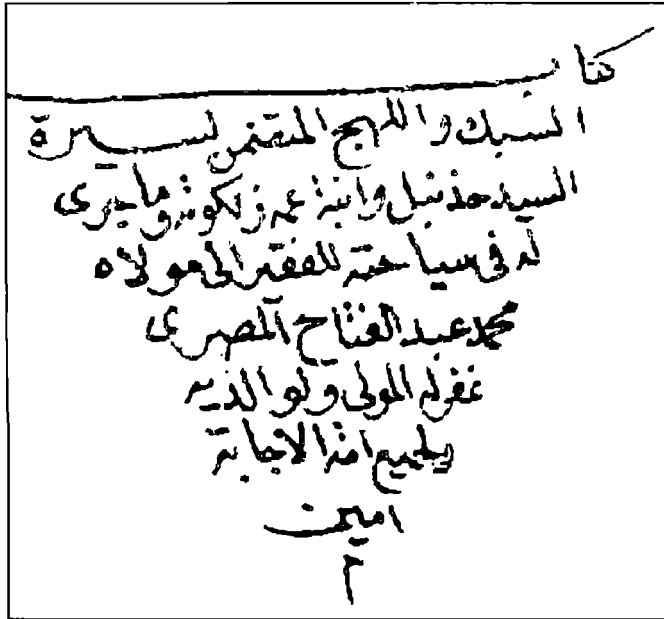 كتاب
السبك واللهج المتضمن لسيرة
السيد حذنبل وابنة عمه زنكوشة وما جرى
له في سياحته للفقير الى مولاه
محمد عبد الفتاح المصرى
غفر له المولى ولوالديه
ولجميع امة الاجابة
امين
م